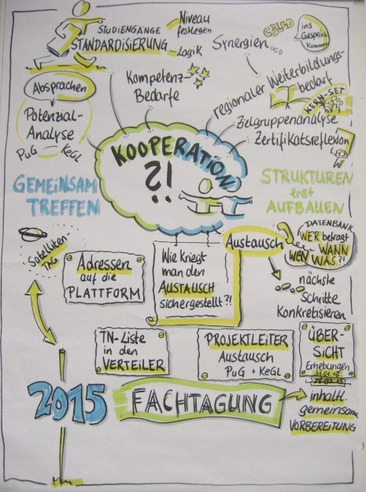 STUDIENGÄNGE
STANDARDISIERUNG
Niveau
festlegen
Logik
Synergien...
ins
Gespräch
kommen
Absprachen
Potenzial-
Analyse
PuG KeGL
Kompetenz-
Bedarfe
regionaler Weiterbildungs-
bedarf
KERN-SET
Zielgruppenanalyse
Zertifikatsreflexion
KOOPERATION
?!
GEMEINSAM
TREFFEN
STRUKTUREN
erst
AUFBAUEN
Satelliten
TAG
Adressen
auf die
PLATTFORM
Wie kriegt
man den
AUSTAUSCH
sichergestellt?!
Austausch
DATENBANK
WER befragt
WEN WANN
WAS?
nächste
Schritte
Konkretisieren
TN-Liste
in den
VERTEILER
PROJEKTLEITER
Austausch
PuG + KeGL
ÜBER-
SICHT
Erhebungen
2015
FACHTAGUNG
inhaltl.
gemeinsame
VORBEREITUNG